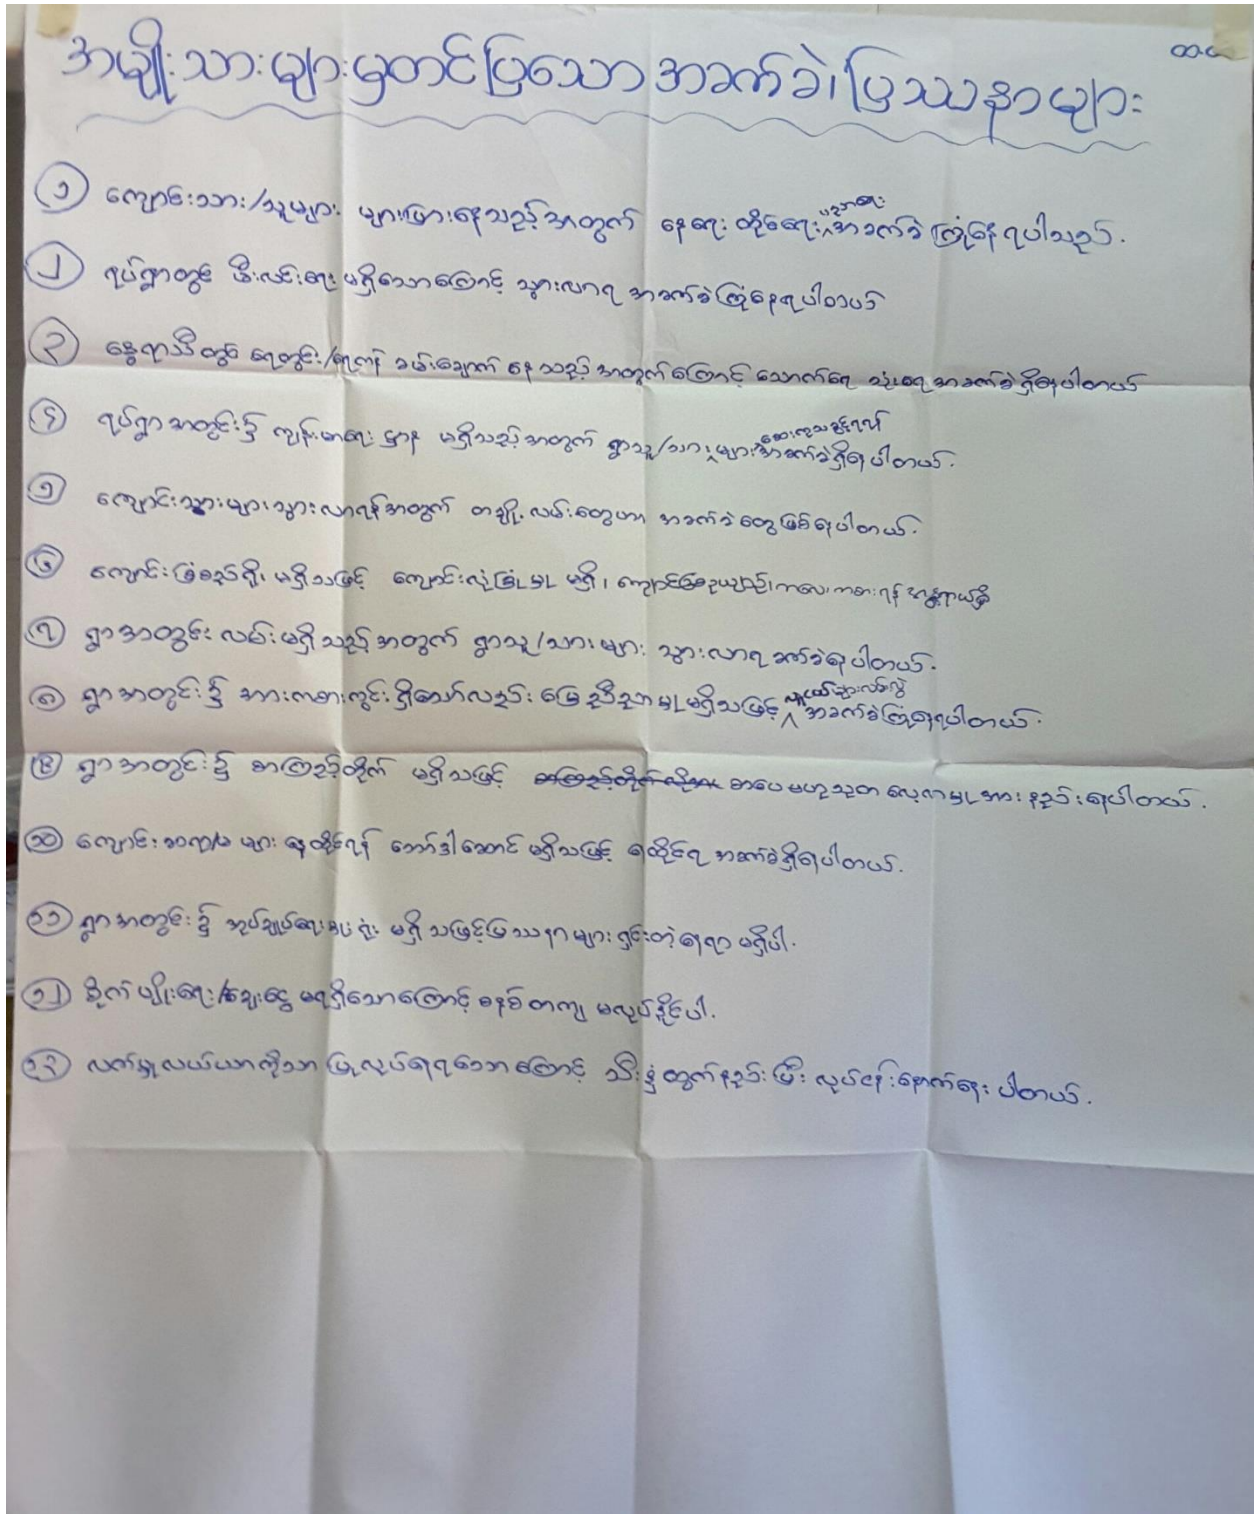 ထ-ယ
အမျိုးသားများမှတင်ပြသောအခက်ခဲ၊ပြဿနာများ
၁ ကျောင်းသား/သူများ များပြားနေသည့်အတွက် နေရေး ထိုင်ရေး ပညာရေး အခက်ခဲ ကြုံနေရပါသည်.
၂ ရပ်ရွာတွင် မီးလင်းရေး မရှိသောကြောင့် သွားလာရ အခက်ခဲကြုံနေရပါတယ်
၃ နွေရာသီတွင် ရေတွင်း/ရေကန် ခမ်းခြောက် နေသည့် အတွက်ကြောင့် သောက်ရေ သုံးရေ အခက်ခဲရှိနေပါတယ်
၄ ရပ်ရွာအတွင်း၌ ကျန်းမာရေး ဌာန မရှိသည့်အတွက် ရွာသူ/သားများ ဆေးကုသရန် အခက်ခဲရှိနေပါတယ်.
၅ ကျောင်းသွားများသွားလာရန်အတွက် တချို့လမ်းတွေဟာ အခက်ခဲတွေဖြစ်နေပါတယ်.
၆ ကျောင်းခြံစည်းရိုး မရှိသဖြင့် ကျောင်းလုံခြုံမှု မရှိ၊ ကလေးကစားရန်
၇ ရွာအတွင်း လမ်းမရှိသည့်အတွက် ရွာသူ/သားများ သွားလာရ ခက်ခဲနေပါတယ်.
၈ ရွာအတွင်း၌ အားကစားကွင်းရှိသော်လည်း မြေညီညာမှုမရှိသဖြင့် အခက်ခဲကြုံနေရပါတယ်.
၉ ရွာအတွင်း၌ စာကြည့်တိုက် မရှိသဖြင့် စာပေဗဟုသုတ လေ့လာမှုအားနည်းနေပါတယ်.
၁၀ ကျောင်းဆရာ/မ များ နေထိုင်ရန် ဘော်ဒါဆောင် မရှိသဖြင့် နေထိုင်ရ အခက်ခဲရှိနေပါတယ်.
၁၁ ရွာအတွင်း၌ အုပ်ချုပ်ရေးမှူးရုံး မရှိသဖြင့်ပြဿနာများရှင်းတဲ့နေရာ မရှိပါ.
၁၂ စိုက်ပျိုးရေး/ချေးငွေ မရရှိသောကြောင့် စနစ်တကျ မလုပ်နိုင်ပါ.
၁၃ လက်မှုလယ်ယာကိုသာ ပြုလုပ်နေရသောကြောင့် သီးနှံထွက်နည်းပြီး လုပ်ငန်းနှောက်နှေးပါတယ်.